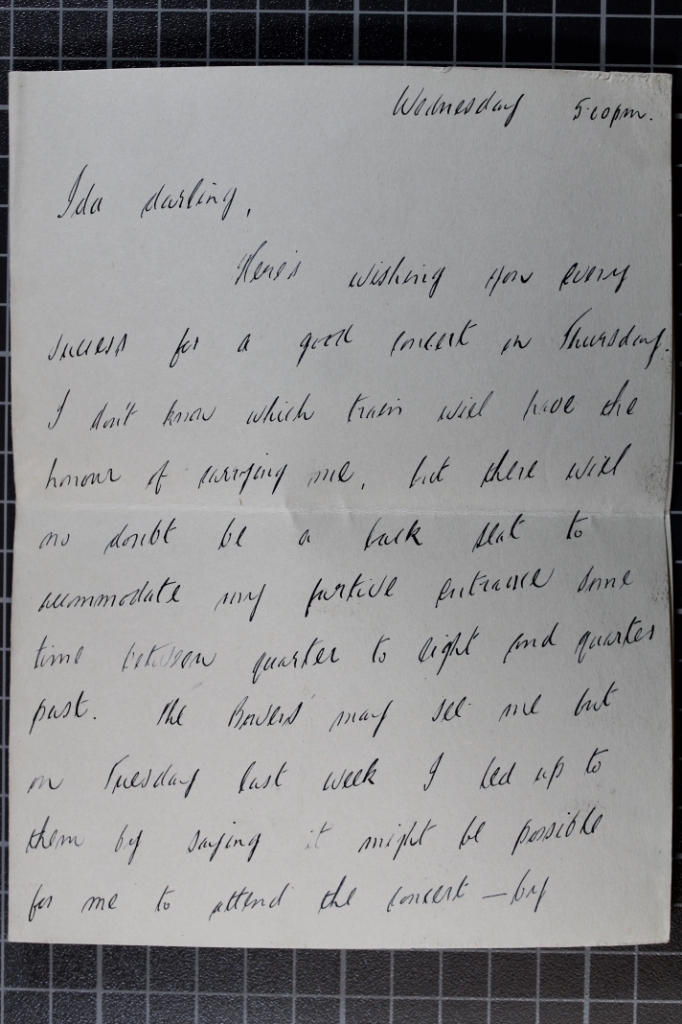 Wednesday 5.00pm.
Ida darling,
Here's wishing you every
success for a good concert on Thursday.
I don't know which train will have the
honour of carrying me, but there will
no doubt be a back seat to
accommodate my furtive entrance some
time between quarter to eight and quarter
past. The Bowers' may see me but
on Tuesday last week I led up to
them by saying it might be possible
for me to attend the concert — by